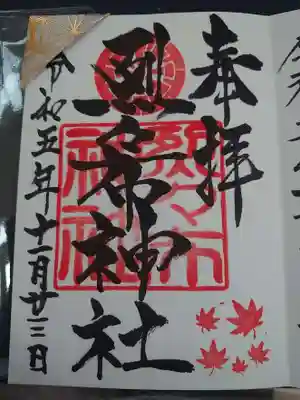 奉拝
烈々布神社
烈々布
神社
令和五年十一月廿三日